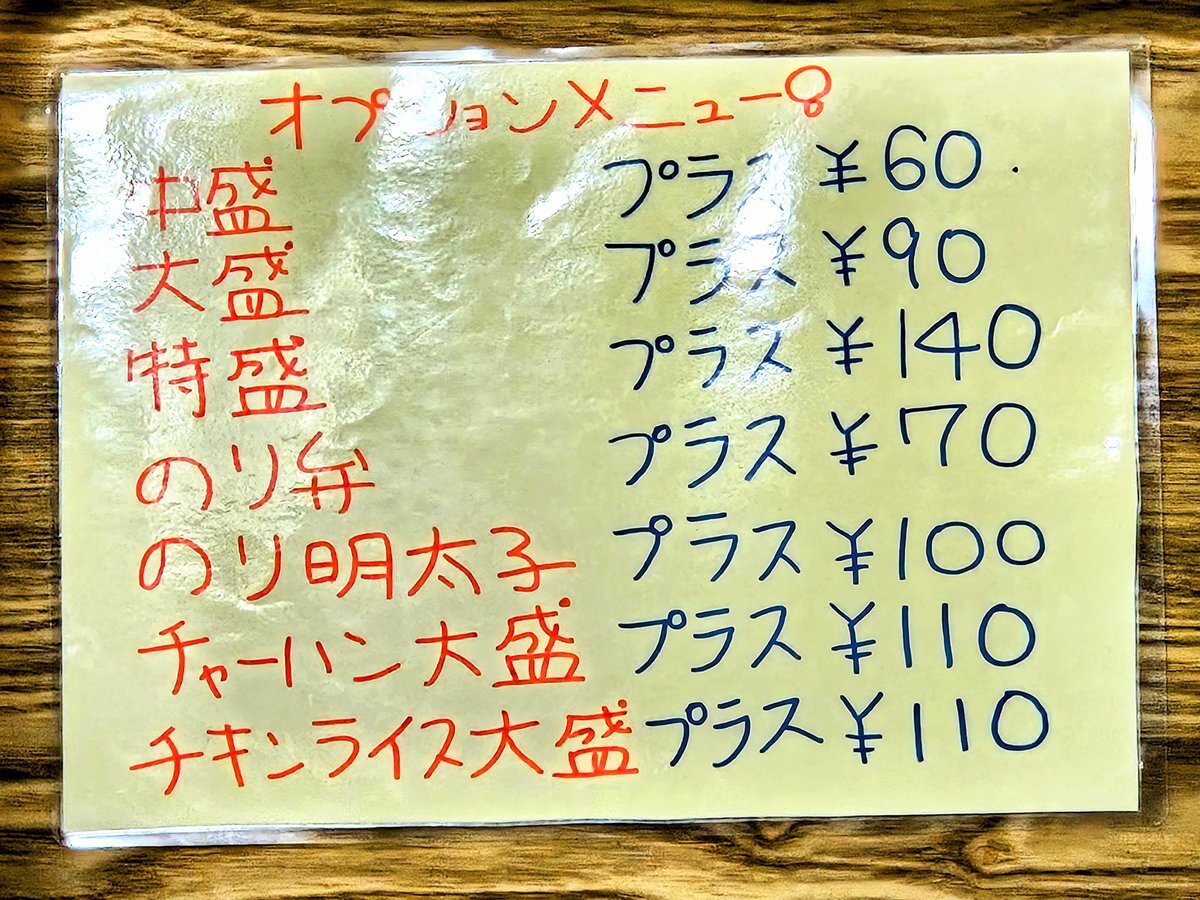 オプションメニュー
中盛 プラス ¥60
大盛 プラス ¥90
特盛 プラス ¥140
のり弁 プラス ¥70
のり明太子 プラス ¥100
チャーハン大盛 プラス ¥110
チキンライス大盛 プラス ¥110